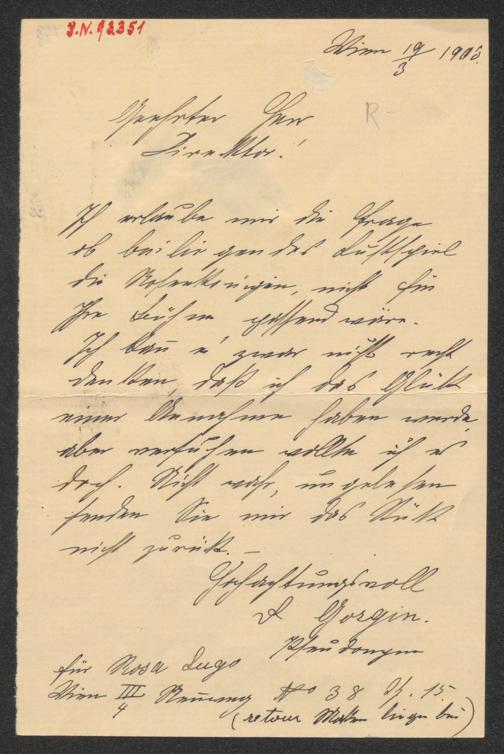 J.N. 93351
Wien 19/3 1905.
R-
Geehrter Herr
Direktor!
Ich erlaube mir die Frage
ob beiliegendes Lustspiel
die Rosenkönigin, nicht für
Ihre Bühne passend wäre.
Ich kann es zwar nicht recht
denkken, daß ich das Glük
einer Annahme haben werde,
aber versuchen wollte ich es
doch. Nicht wahr, ungelesen
senden Sie mir das Stük
nicht zurük. —
Hochachtungsvoll
Gorgin.
Pseudonym
für Rosa Lugo
Wien III/4 Rennweg No 38 Th. 15.
(retour Marken liegen bei)